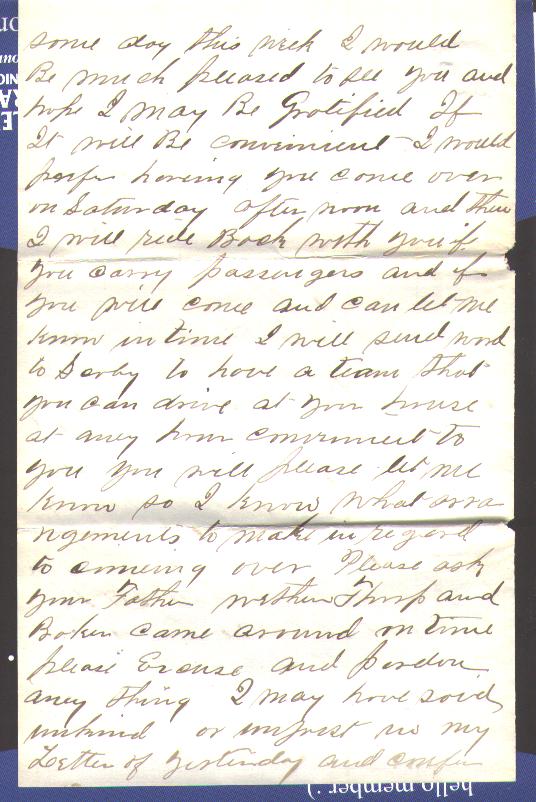 some day this week I would
Be much pleased to see you and
hope I may Be Gratified If
It will Be convenient I would
prefer having you come over
on Saturday after noon and then
I will ride Back with you if
you carry passengers and if
you will come and can let me
know in time I will send word
to Derby to have a team that
you can drive at your house
at aney hour convenient to
you you will please let me
know so I know what arra
ngements to make in regard
to comeing over Please ask
your Father wether Thorp and
Baker came around on time
please Excuse and pardon
aney thing I may have said
unkind or unjust in my
Letter of yesterday and confer
hello member :)